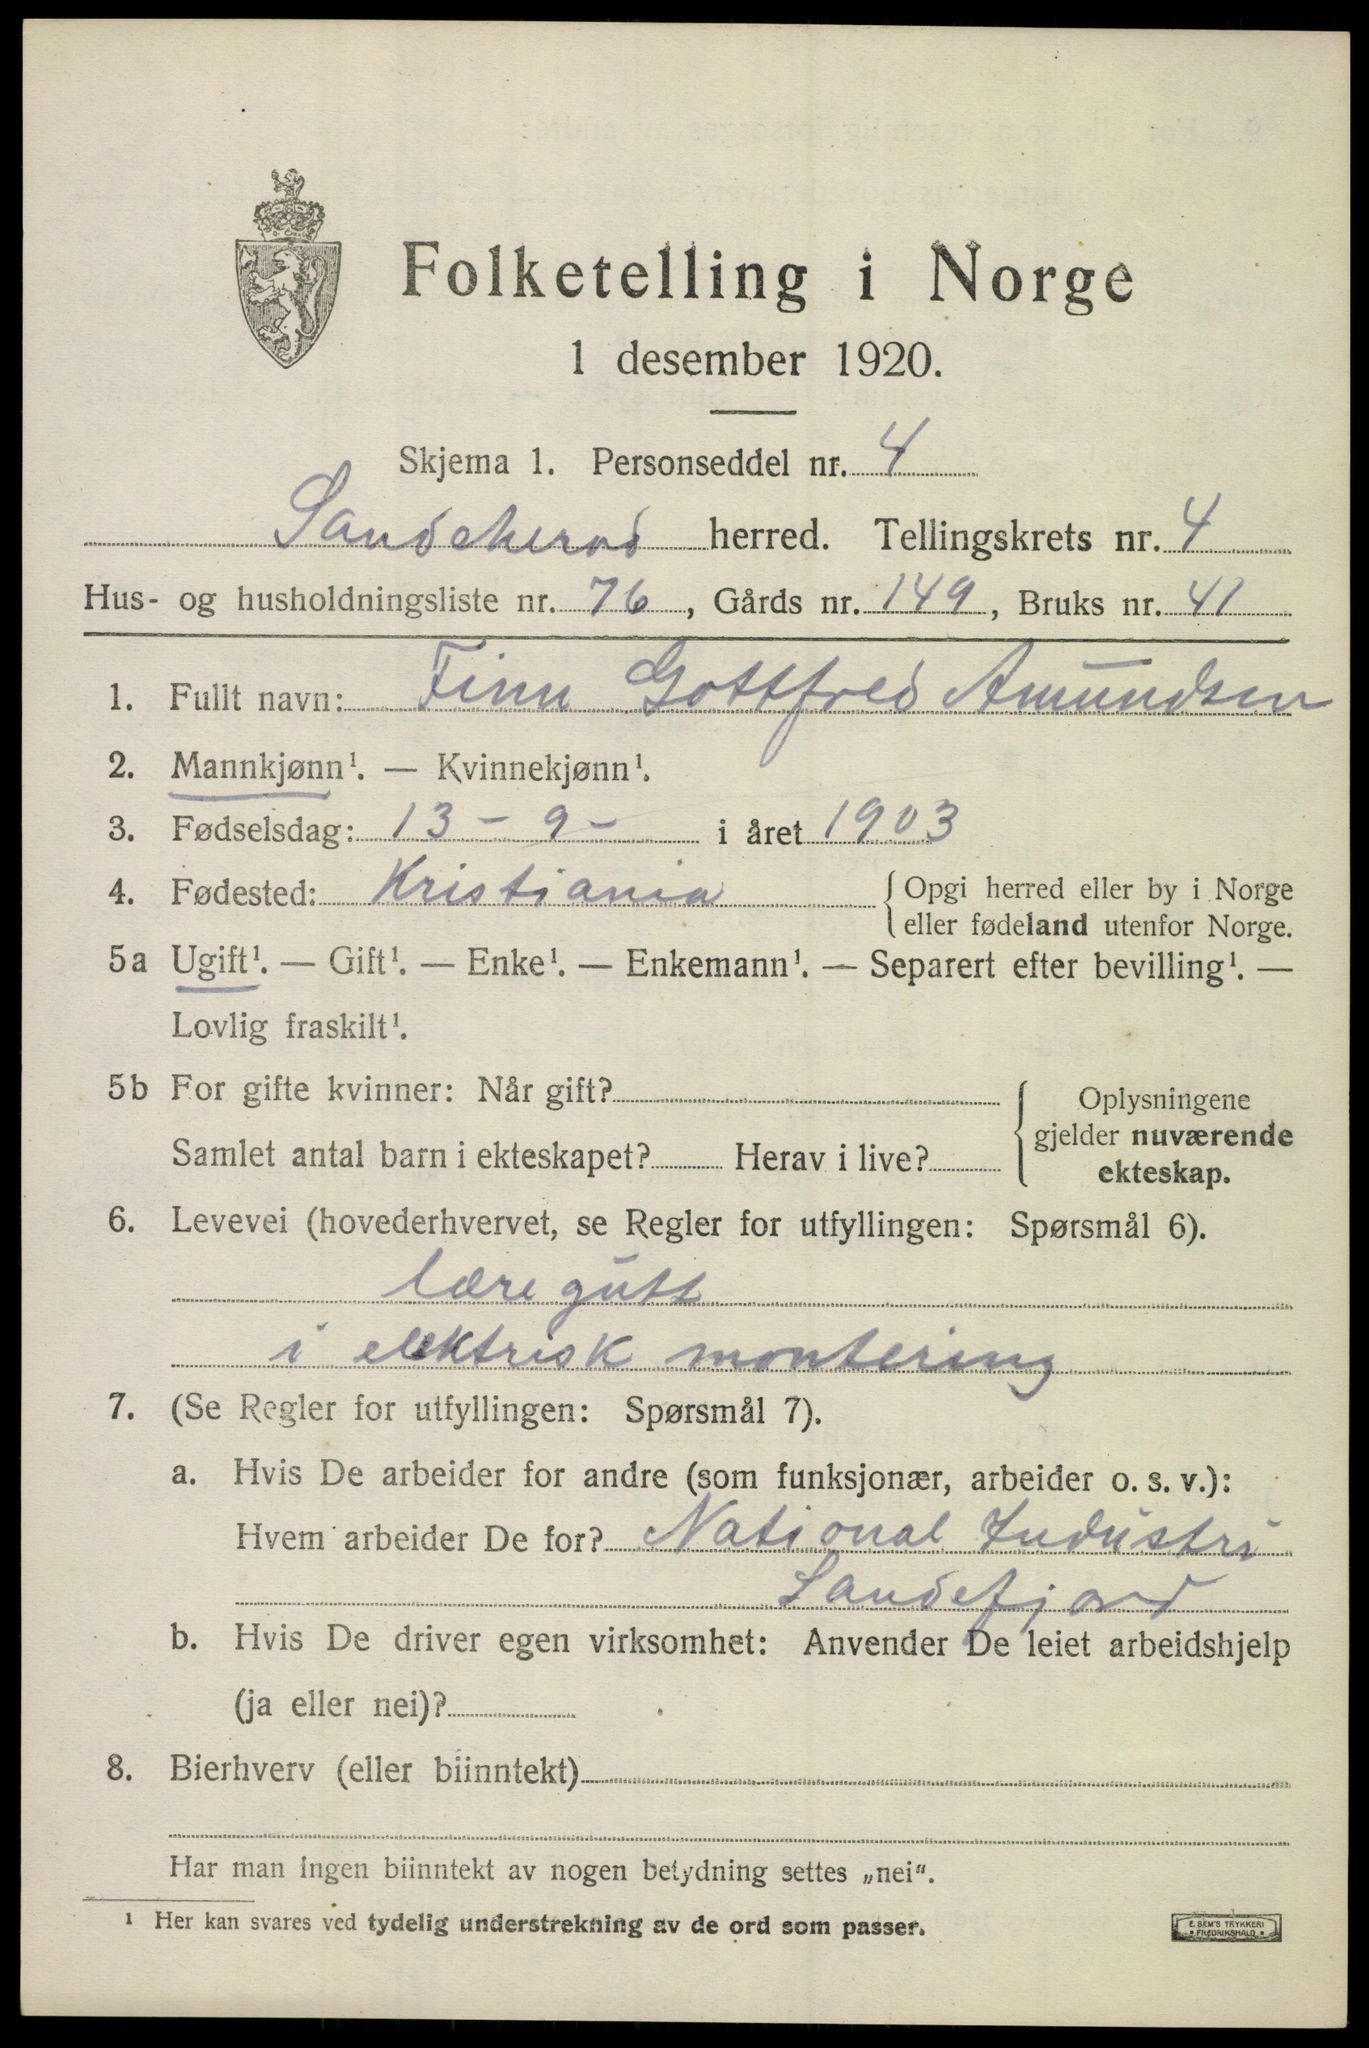 Folketelling i Norge
1 desember 1920.
Skjema 1. Personseddel nr. 4
Sandeherad herred. Tellingskrets nr. 4
Hus- og husholdningsliste nr. 76, Gårds nr. 149, Bruks nr. 41
1. Fullt navn: Finn Gottfred Amundsen
2. Mannkjønn¹. — Kvinnekjønn¹.
3. Fødselsdag: 13 - 9 - i året 1903
4. Fødested: Kristiania { Opgi herred eller by i Norge
eller fødeland utenfor Norge.
5a Ugift¹. — Gift¹. — Enke¹. — Enkemann¹. — Separert efter bevilling¹. —
Lovlig fraskilt¹.
5b For gifte kvinner: Når gift? { Oplysningene
gjelder nuværende
Samlet antal barn i ekteskapet? Herav i live?
ekteskap.
6. Levevei (hovederhvervet, se Regler for utfyllingen: Spørsmål 6).
læregutt
i elektrisk montering
7. (Se Regler for utfyllingen: Spørsmål 7).
a. Hvis De arbeider for andre (som funksjonær, arbeider o. s. v.):
Hvem arbeider De for? National Industri
Sandefjord
b. Hvis De driver egen virksomhet: Anvender De leiet arbeidshjelp
(ja eller nei)?
8. Bierhverv (eller biinntekt)
Har man ingen biinntekt av nogen betydning settes „nei".
¹ Her kan svares ved tydelig understrekning av de ord som passer.
E. SEM'S TRYKKERI
FREDRIKSHALD